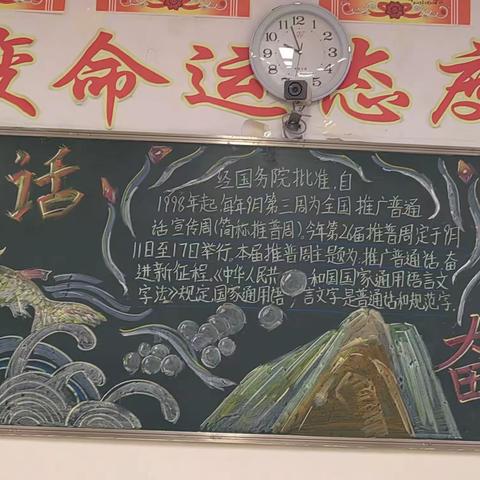 变命运态度
话
经国务院批准,自
1998年起,每年9月第三周为全国推广普通
话宣传周(简称推普周).今年第26届推普周定于9月
11日至17日举行.本届推普周主题为:推广普通话,奋
进新征程.《中华人民共和国国家通用语言文
字法》规定,国家通用语言文字是普通话和规范字.
奋